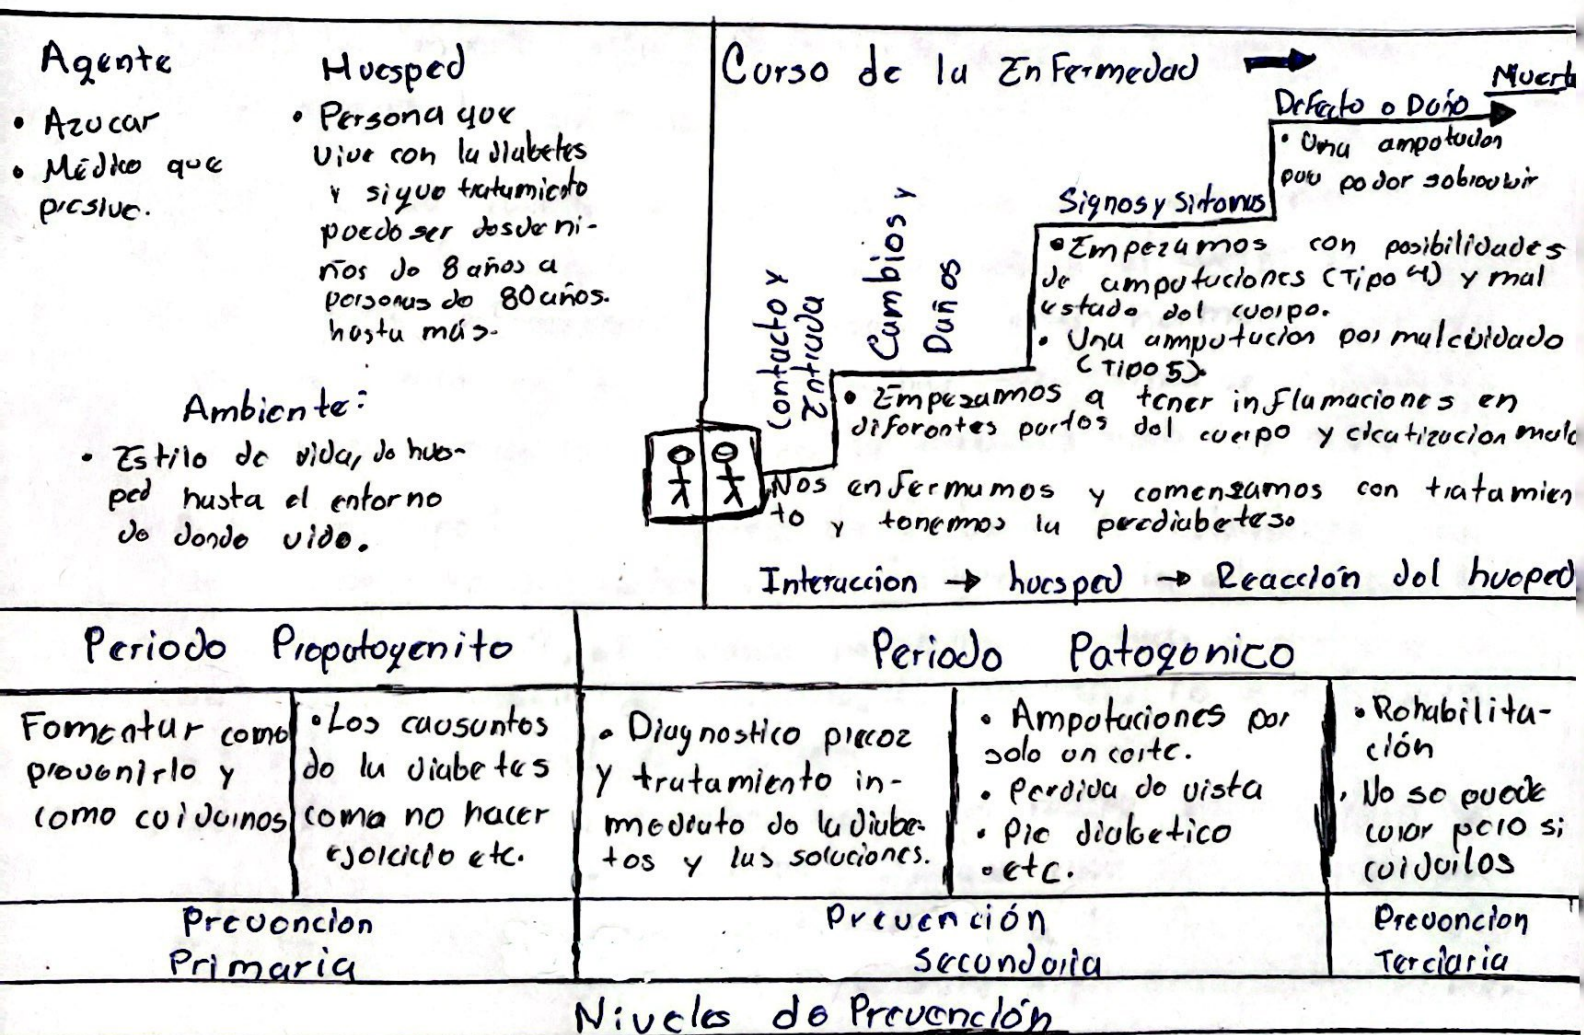 Agente
• Azucar
• Médico que
Huesped
• Persona que
vive con la diabetes
y sigue tratamiento
puede ser desde ni-
ños de 8 años a
personas de 80 años.
hasta más.
Ambiente:
• Estilo de vida, de hues-
ped hasta el entorno
de donde vide.
Curso de la Enfermedad →
Muert
Defecto o Daño
• Una amputacion
para poder sobrevivir
Signos y Sintomas
• Empezamos con posibilidades
de amputaciones (Tipo 4) y mal
estado del cuerpo.
• Una amputacion por mal cuidado
(Tipo 5).
Cambios y
Daños
• Empezamos a tener inflamaciones en
diferentes partes del cuerpo y cicatizacion mala
Contacto y
Entrada
Nos enfermamos y comenzamos con tratamien
to y tenemos la prediabetes.
Interaccion → huesped → Reacción del hueped
Periodo Prepatogenito
Periodo Patogenico
Fomentar como
prevenirlo y
como cuidarnos
• Los causantes
de la diabetes
como no hacer
ejercicio etc.
• Diagnostico precoz
y tratamiento in-
mediato de la diabe-
tes y las soluciones.
• Amputaciones por
solo un corte.
• Perdida de vista
• Pie diabetico
• etc.
• Rehabilita-
ción
• No se puede
curar pero si
cuidarlos
Prevencion
Primaria
Prevención
Secundaria
Prevencion
Terciaria
Niveles de Prevención